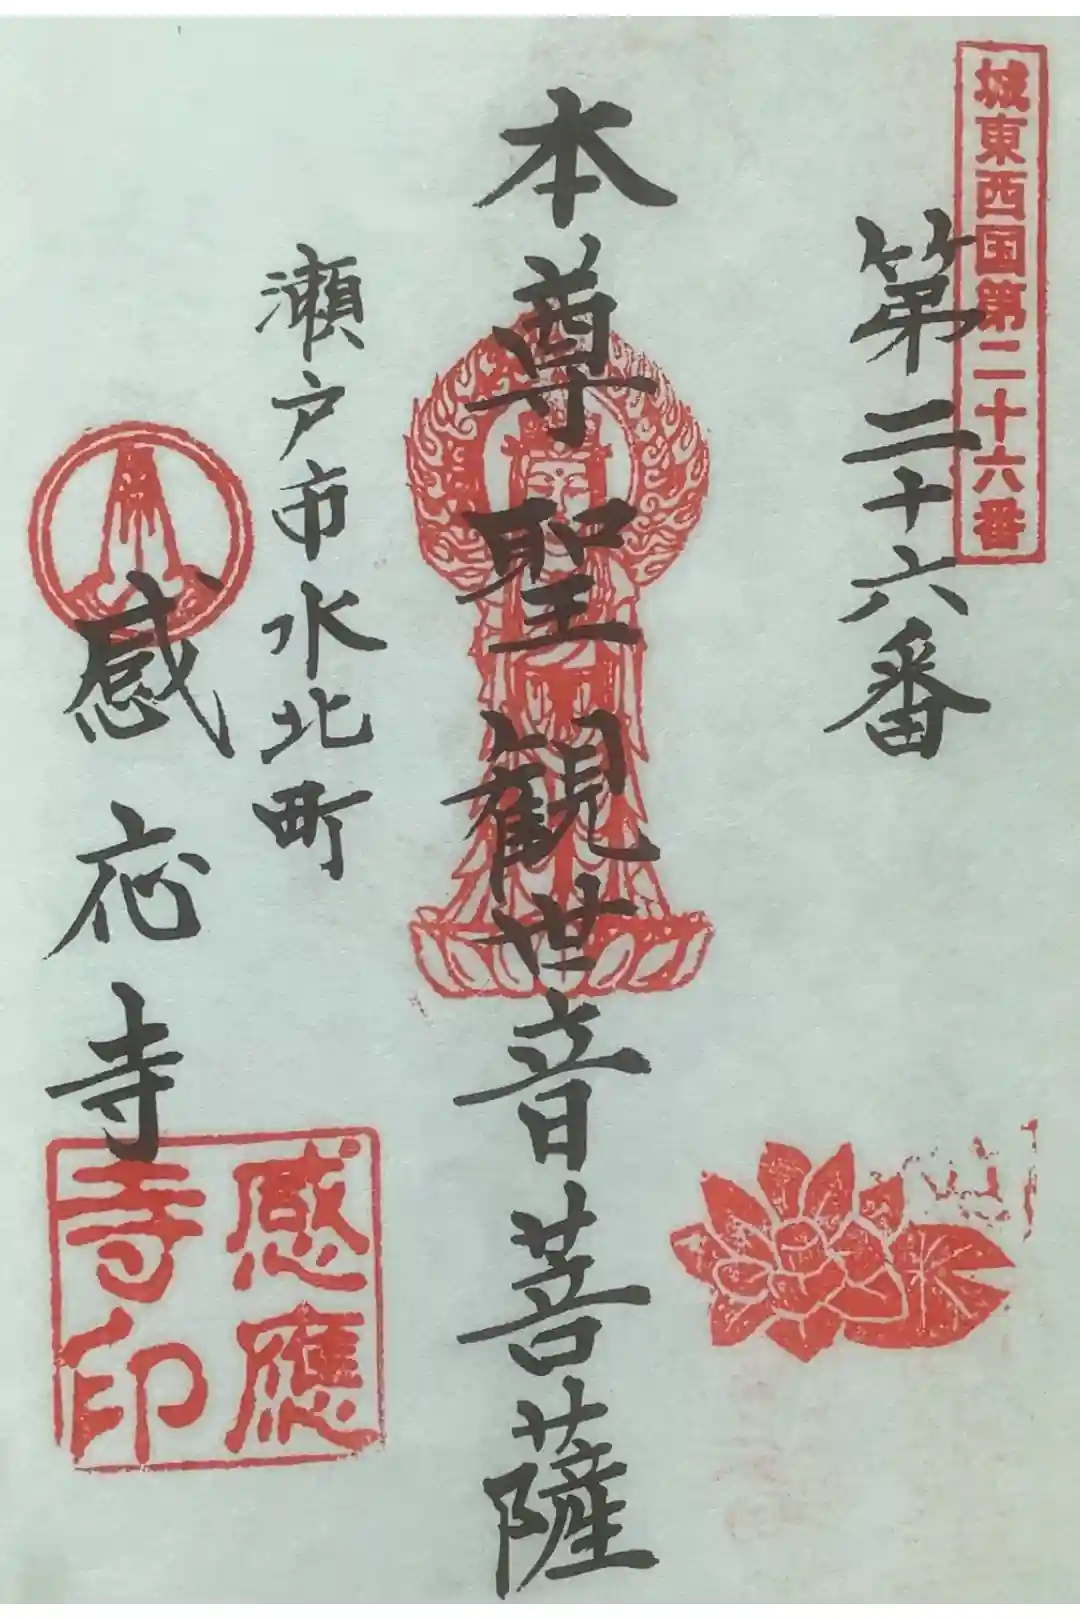 城東西国第二十六番
第二十六番
本尊聖観世音菩薩
瀬戸市水北町
感応寺
感應
寺印